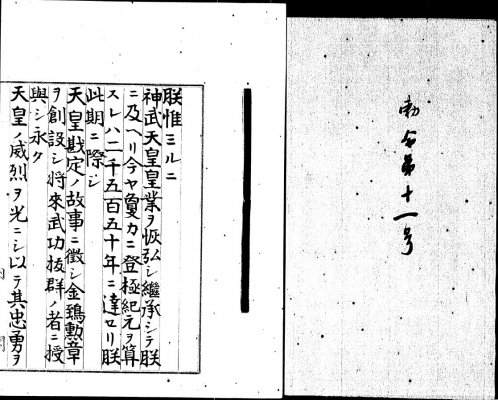 勅令第十一号
朕惟ミルニ
神武天皇皇業ヲ恢弘シ継承シテ朕
ニ及ヘリ今ヤ夐カニ登極紀元ヲ算
スレハ二千五百五十年ニ達セリ朕
此期ニ際シ
天皇戡定ノ故事ニ徴シ金鵄勲章
ヲ創設シ将来武功抜群ノ者ニ授
與シ永ク
天皇ノ威烈ヲ光ニシ以テ其忠勇ヲ
内閣